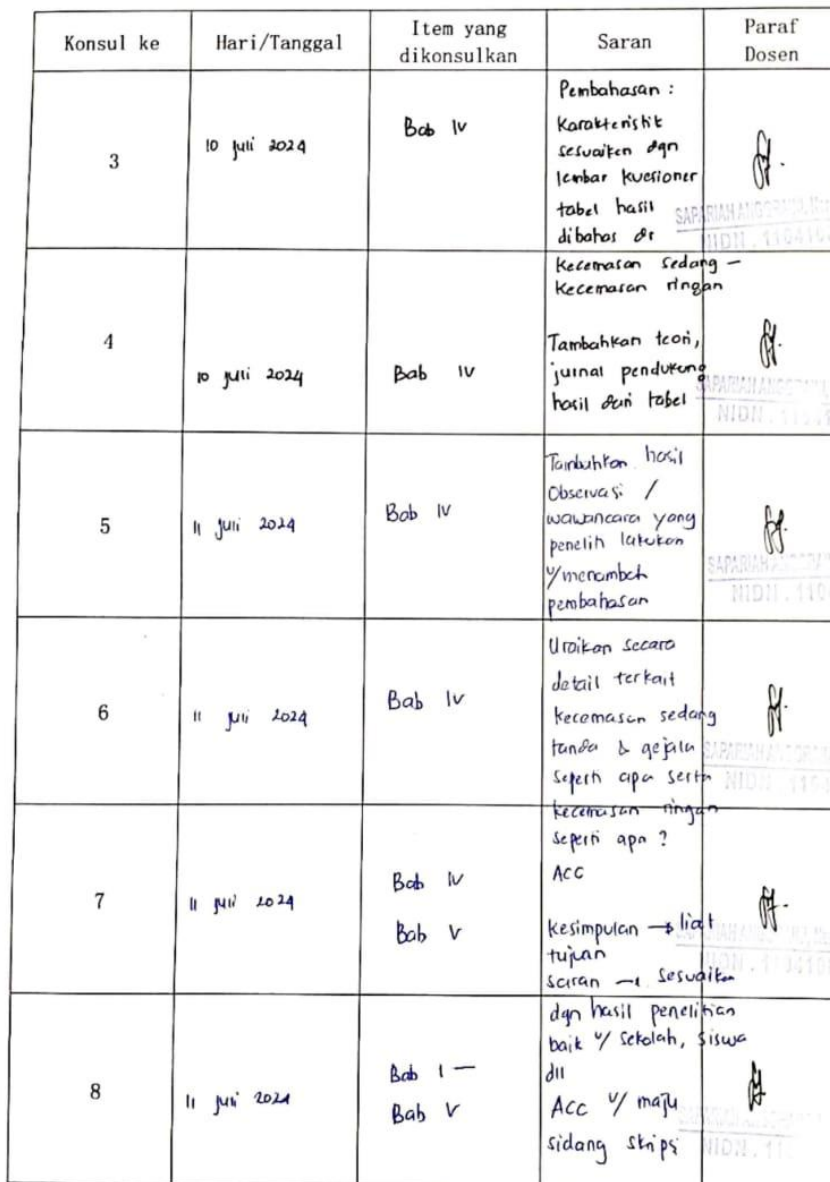 Konsul ke Hari/Tanggal Item yang dikonsulkan Saran Paraf Dosen
3 10 Juli 2024 Bab IV
Pembahasan :
Karakteristik
sesuaiken dgn
lembar kuesioner
tabel hasil
dibahas dr
kecemasan sedang –
kecemasan ringan
4 10 Juli 2024 Bab IV
Tambahkan teori,
jurnal pendukung
hasil dari tabel
5 11 Juli 2024 Bab IV
Tambahkan hasil
Observasi /
wawancara yang
peneliti lakukan
u/menambah
pembahasan
6 11 Juli 2024 Bab IV
Uraikan secara
detail terkait
kecemasan sedang
tanda & gejala
seperti apa serta
kecemasan ringan
seperti apa ?
7 11 Juli 2024 Bab IV
ACC
Bab V
kesimpulan → liat
tujuan
saran → sesuaiken
dgn hasil penelitian
baik u/ sekolah, siswa
dll
8 11 Juli 2024 Bab I –
Bab V
ACC u/ maju
sidang skripsi
NIDN.